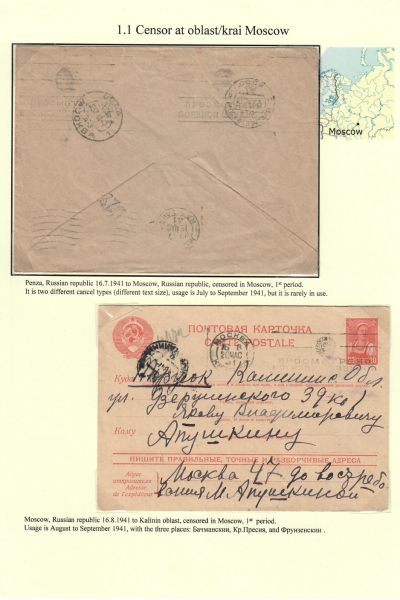 1.1 Censor at oblast/krai Moscow
Moscow
Penza, Russian republic 16.7.1941 to Moscow, Russian republic, censored in Moscow, 1st period.
It is two different cancel types (different text size), usage is July to September 1941, but it is rarely in use.
ПОЧТОВАЯ КАРТОЧКА
CARTE POSTALE
МОСКВА
Куда Калинин. Обл.
ул. Дзержинского 39 кв 1
Льву Владимировичу
Кому Апушкину
ПИШИТЕ ПРАВИЛЬНЫЕ, ТОЧНЫЕ И РАЗБОРЧИВЫЕ АДРЕСА
Адрес отправителя
Adresse de l'expéditeur
Москва 47 до востребо
вания М. Апушкиной
Moscow, Russian republic 16.8.1941 to Kalinin oblast, censored in Moscow, 1st period.
Usage is August to September 1941, with the three places: Бачманский, Кр.Пресня, and Фрунзенский .